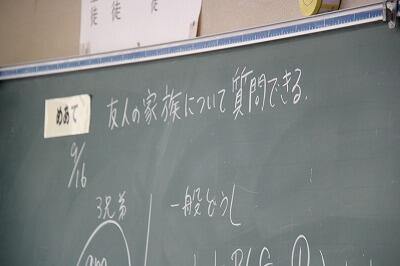 徒 徒 徒
めあて 友人の家族について質問できる.
9/16
3兄弟
一般どうし
am